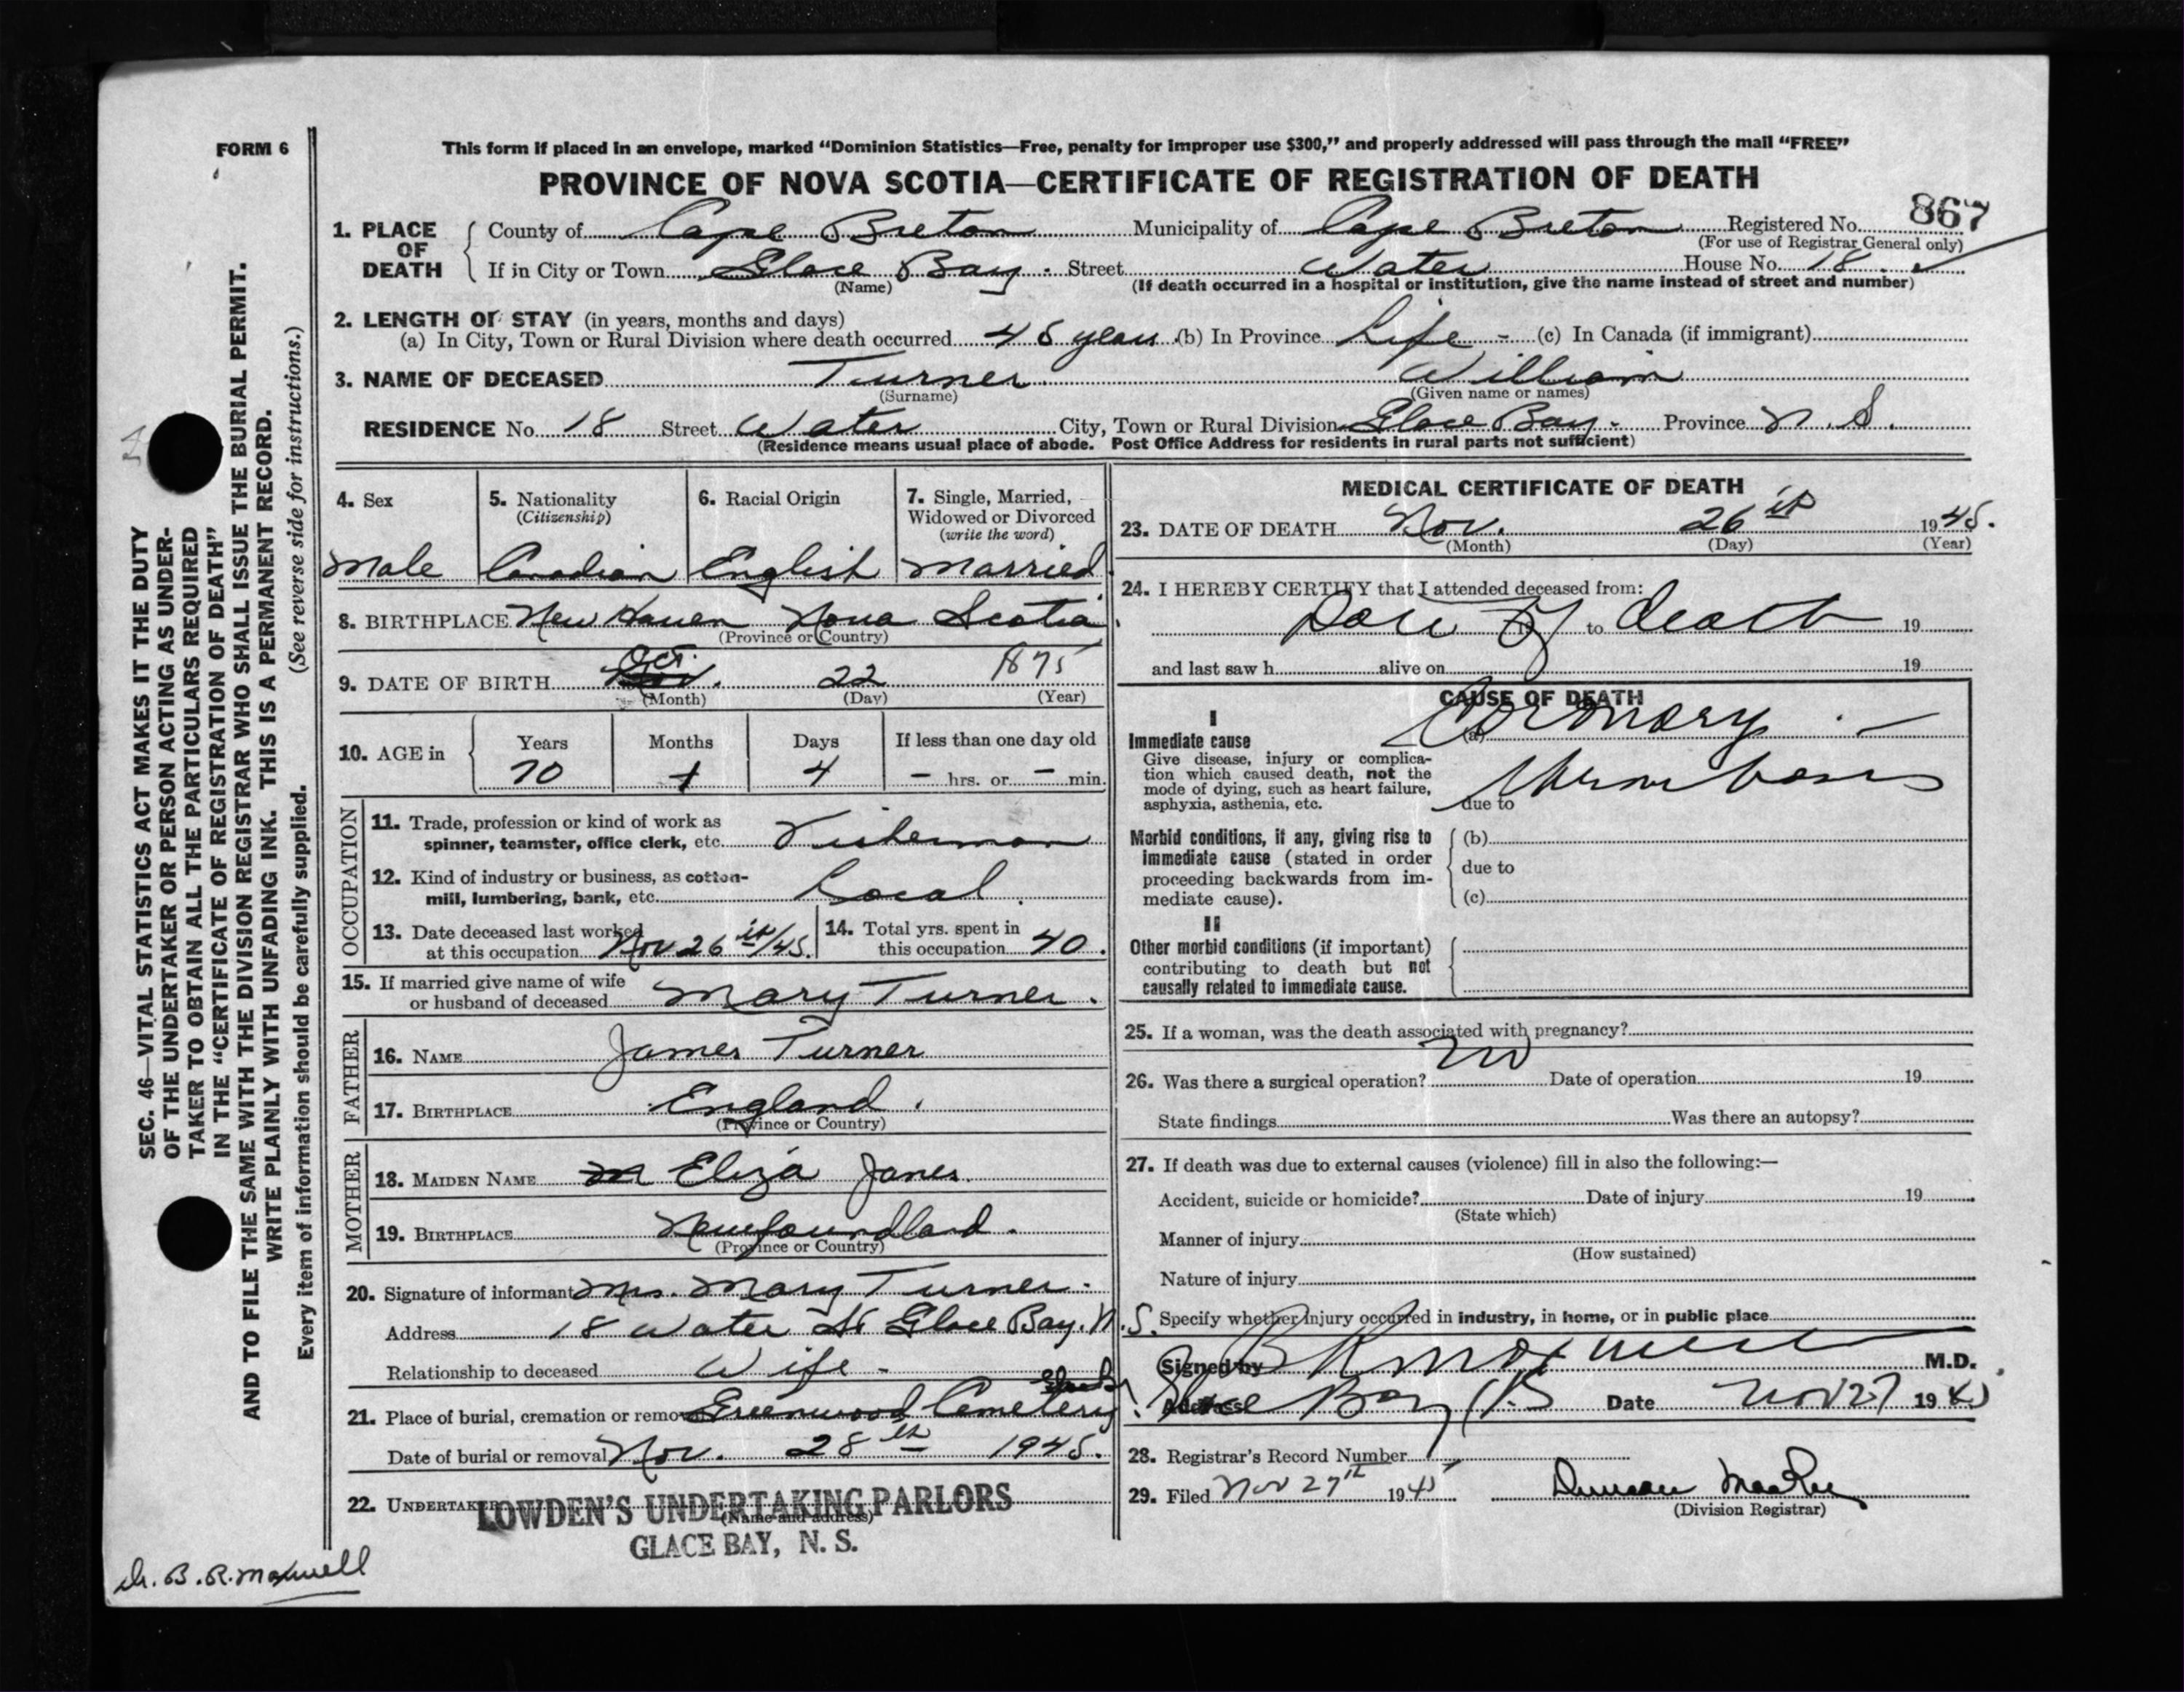 FORM 6
This form if placed in an envelope, marked "Dominion Statistics—Free, penalty for improper use $300," and properly addressed will pass through the mail "FREE"
PROVINCE OF NOVA SCOTIA—CERTIFICATE OF REGISTRATION OF DEATH
867
1. PLACE OF DEATH County of Cape Breton Municipality of Cape Breton Registered No.
(For use of Registrar General only)
If in City or Town Glace Bay. Street Water House No. 18
(Name) (If death occurred in a hospital or institution, give the name instead of street and number)
2. LENGTH OF STAY (in years, months and days)
(a) In City, Town or Rural Division where death occurred 45 years (b) In Province Life - (c) In Canada (if immigrant)
3. NAME OF DECEASED Turner William
(Surname) (Given name or names)
RESIDENCE No. 18 Street Water City, Town or Rural Division Glace Bay. Province N.S.
(Residence means usual place of abode. Post Office Address for residents in rural parts not sufficient)
4. Sex 5. Nationality (Citizenship) 6. Racial Origin 7. Single, Married, Widowed or Divorced (write the word)
Male Canadian English Married
8. BIRTHPLACE New Haven Nova Scotia
(Province or Country)
9. DATE OF BIRTH Oct. 22 1875
(Month) (Day) (Year)
10. AGE in Years Months Days If less than one day old
70 1 4 - hrs. or - min.
OCCUPATION
11. Trade, profession or kind of work as
spinner, teamster, office clerk, etc. Fisherman
12. Kind of industry or business, as cotton-
mill, lumbering, bank, etc. Local.
13. Date deceased last worked
at this occupation Nov 26th/45.
14. Total yrs. spent in
this occupation 40.
15. If married give name of wife
or husband of deceased Mary Turner.
FATHER
16. NAME James Turner
17. BIRTHPLACE England.
(Province or Country)
MOTHER
18. MAIDEN NAME Eliza Janes.
19. BIRTHPLACE Newfoundland.
(Province or Country)
20. Signature of informant Mrs. Mary Turner.
Address 18 Water St Glace Bay. N.S.
Relationship to deceased Wife -
21. Place of burial, cremation or removal Greenwood Cemetery
Date of burial or removal Nov. 28th 1945.
22. UNDERTAKER LOWDEN'S UNDERTAKING PARLORS
(Name and address)
GLACE BAY, N. S.
MEDICAL CERTIFICATE OF DEATH
23. DATE OF DEATH Nov. 26th 1945.
(Month) (Day) (Year)
24. I HEREBY CERTIFY that I attended deceased from:
Date of to death 19
and last saw h alive on 19
CAUSE OF DEATH
I
Immediate cause (a) Coronary
Give disease, injury or complica-
tion which caused death, not the
mode of dying, such as heart failure,
asphyxia, asthenia, etc.
Thrombosis
due to
Morbid conditions, if any, giving rise to
immediate cause (stated in order
proceeding backwards from im-
mediate cause).
(b)
due to
(c)
II
Other morbid conditions (if important)
contributing to death but not
causally related to immediate cause.
25. If a woman, was the death associated with pregnancy?
26. Was there a surgical operation? no Date of operation 19
State findings Was there an autopsy?
27. If death was due to external causes (violence) fill in also the following:—
Accident, suicide or homicide? Date of injury 19
(State which)
Manner of injury
(How sustained)
Nature of injury
Specify whether injury occurred in industry, in home, or in public place
Signed by B R Maxwell M.D.
Address Glace Bay N.S Date Nov 27 1945
28. Registrar's Record Number
29. Filed Nov 27th 1945 Duncan MacRae
(Division Registrar)
Dr. B. R. Maxwell
SEC. 46—VITAL STATISTICS ACT MAKES IT THE DUTY
OF THE UNDERTAKER OR PERSON ACTING AS UNDER-
TAKER TO OBTAIN ALL THE PARTICULARS REQUIRED
IN THE "CERTIFICATE OF REGISTRATION OF DEATH"
AND TO FILE THE SAME WITH THE DIVISION REGISTRAR WHO SHALL ISSUE THE BURIAL PERMIT.
WRITE PLAINLY WITH UNFADING INK. THIS IS A PERMANENT RECORD.
Every item of information should be carefully supplied. (See reverse side for instructions.)